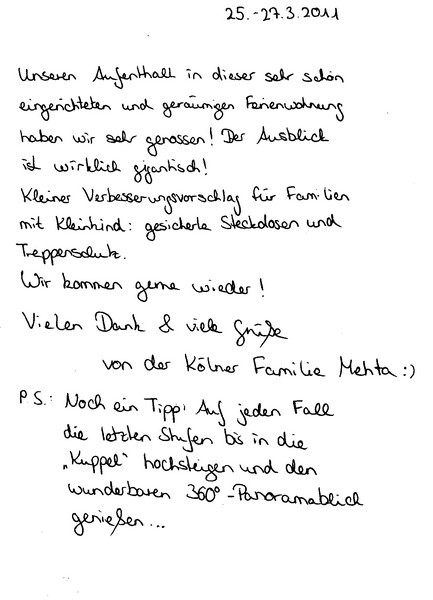 25.-27.3.2011
Unseren Aufenthalt in dieser sehr schön
eingerichteten und geräumigen Ferienwohnung
haben wir sehr genossen! Der Ausblick
ist wirklich gigantisch!
Kleiner Verbesserungsvorschlag für Familien
mit Kleinkind: gesicherte Steckdosen und
Treppenschutz.
Wir kommen gerne wieder!
Vielen Dank & viele Grüße
von der Kölner Familie Mehta :)
P.S.: Noch ein Tipp: Auf jeden Fall
die letzten Stufen bis in die
„Kuppel" hochsteigen und den
wunderbaren 360°-Panoramablick
genießen...